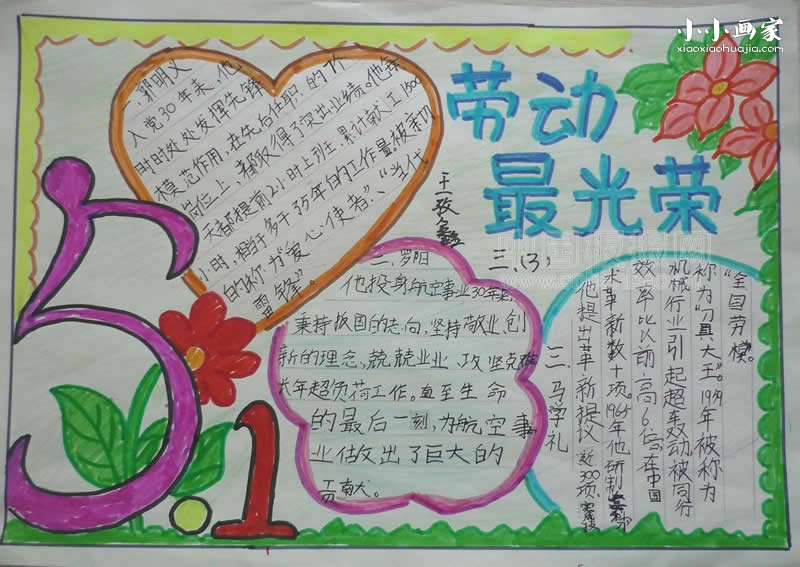 小小画家
xiaoxiaohuajia.com
劳动
最光荣
郭明义
入党30年来,他
时时处处发挥先锋
模范作用,在先后任职的
岗位上,都取得了突出业绩。他每
天都提前2小时上班,累计献工1500
小时,相当于多干35年的工作量。被亲切
的称为“爱心使者”、“当代
雷锋”。
三、(3)
二、罗阳
他投身航空事业30年来,
秉持报国的志向,坚持敬业创
新的理念、兢兢业业、攻坚克难
长年超负荷工作。直至生命
的最后一刻,为航空事
业做出了巨大的
贡献。
三、马学礼
“全国劳模”。
称为“刀具大王”。1959年被称为
机械行业引起轰动被同行
效率比以前高6倍,在中国
术革新数十项。1965年他研制
他提出革新提议近300项,
5.1